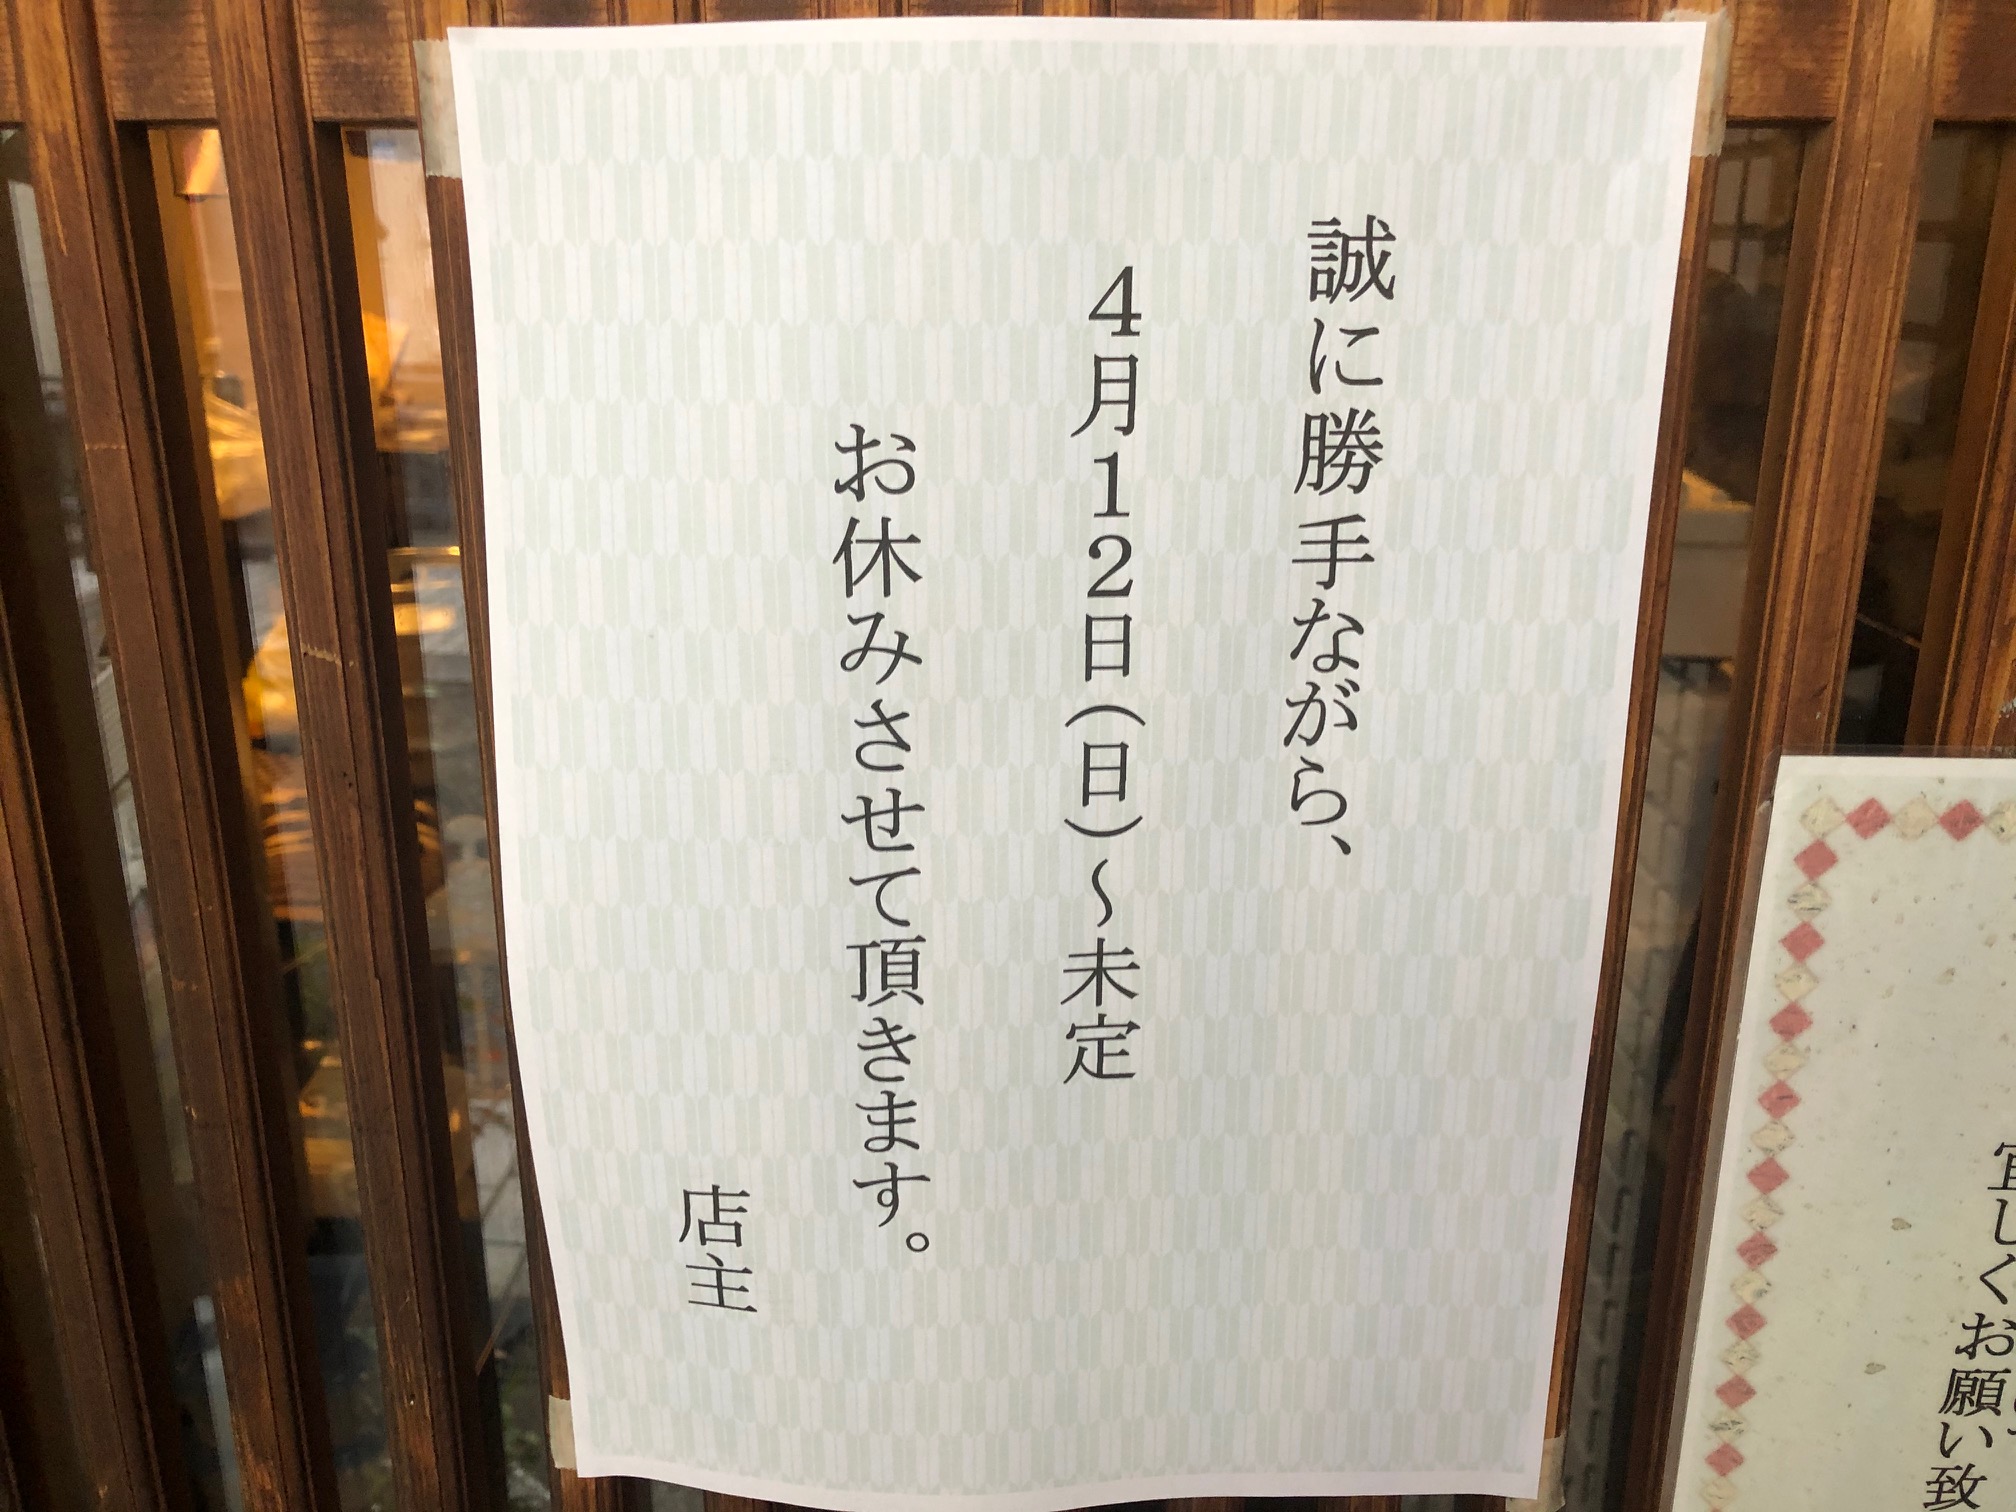 誠に勝手ながら、
4月12日(日)～未定
お休みさせて頂きます。
店主
宜しくお願い致